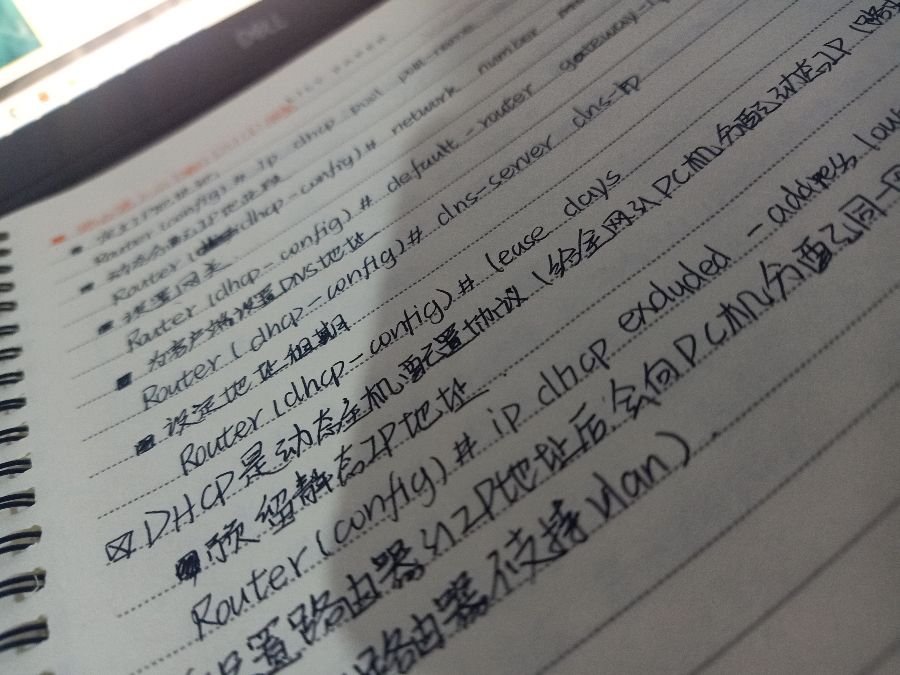 DELL
Router (config) # ip dhcp pool pool-name
动态分配的IP地址段
Router (dhcp-config) # network number
设置网关
Router (dhcp-config) # default-router gateway-ip
为客户端设置DNS地址
Router (dhcp-config) # dns-server dns-ip
设定地址租期
Router (dhcp-config) # lease days
DHCP是动态主机配置协议 (给全网的PC机分配动态IP (路由
预留静态IP地址
Router (config) # ip dhcp excluded-address low
置路由器的IP地址后会向PC机分配不同一网
路由器不支持vlan).